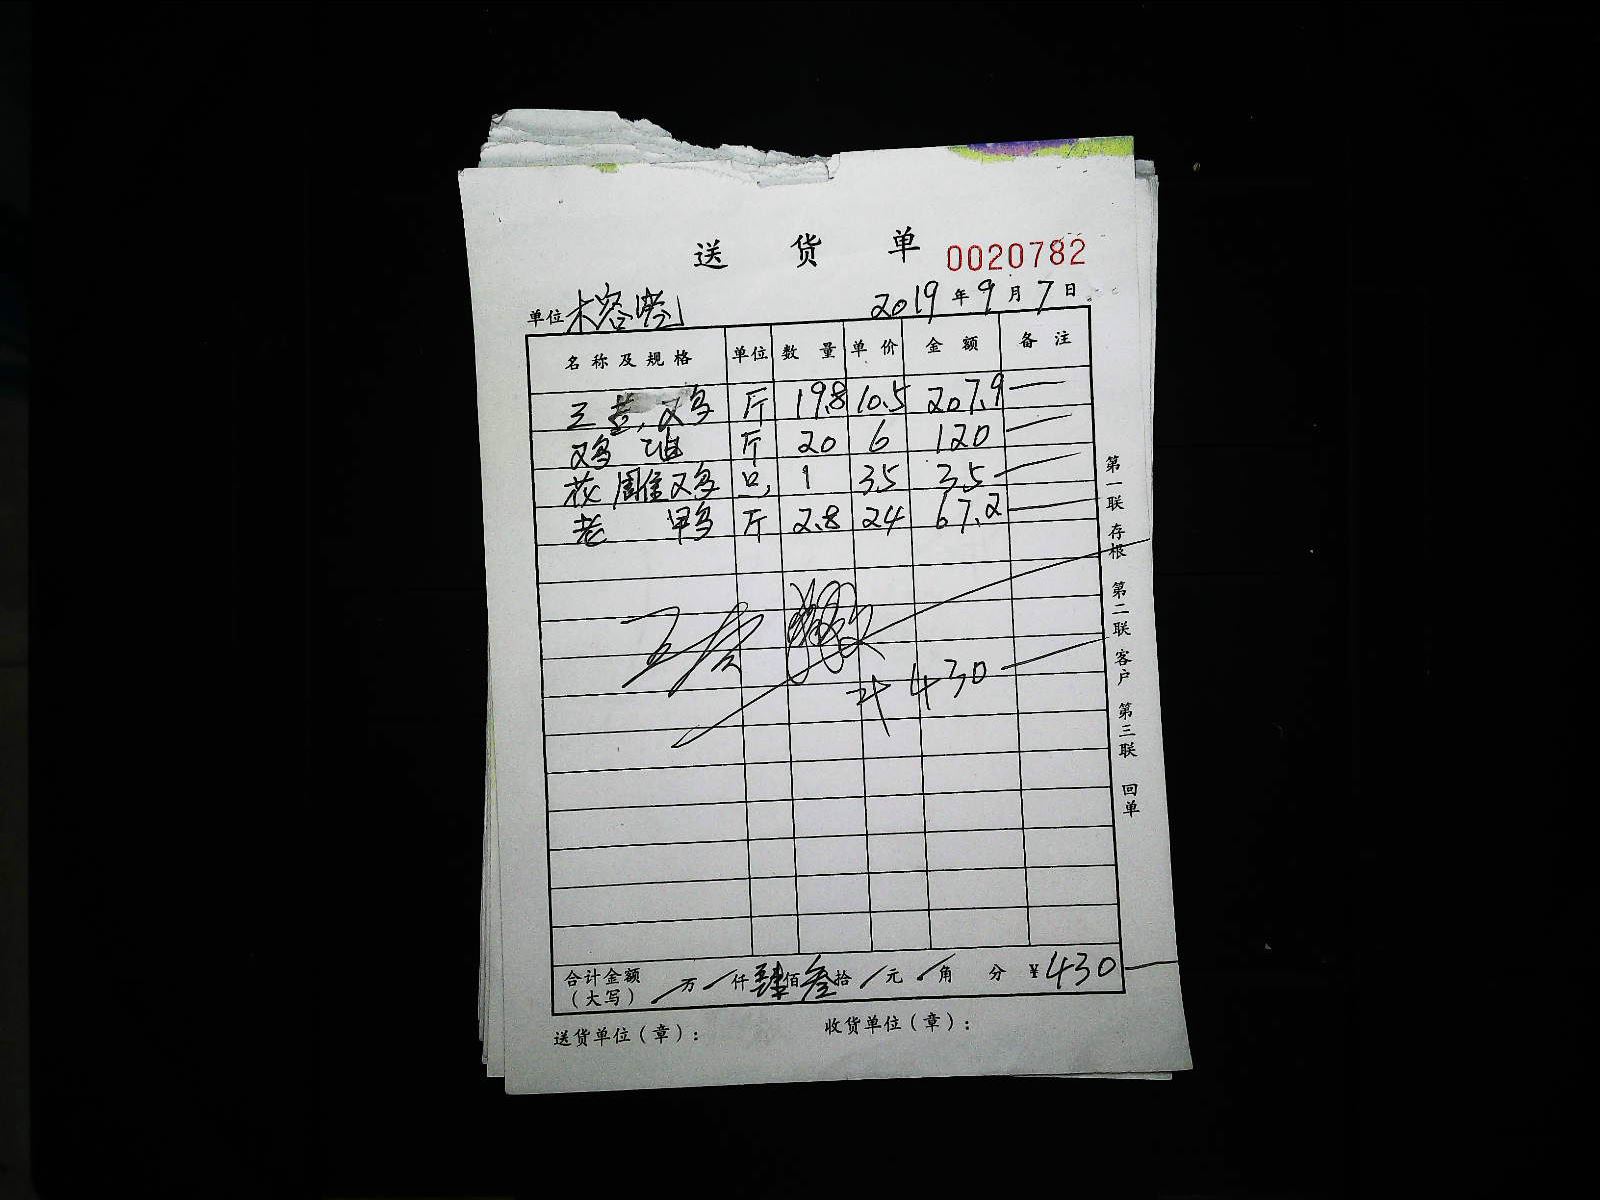 送 货 单 0020782
单位 木容湾 2019 年 9 月 7 日
名称及规格 单位 数量 单价 金额 备注
三黄鸡 斤 19.8 10.5 207.9
鸡油 斤 20 6 120
花雕鸡 只 1 35 35
老鸭 斤 2.8 24 67.2
计 430
合计金额 万 仟 肆 佰 叁 拾 元 角 分 ¥430
（大写）
送货单位（章）： 收货单位（章）：
第一联 存根 第二联 客户 第三联 回单